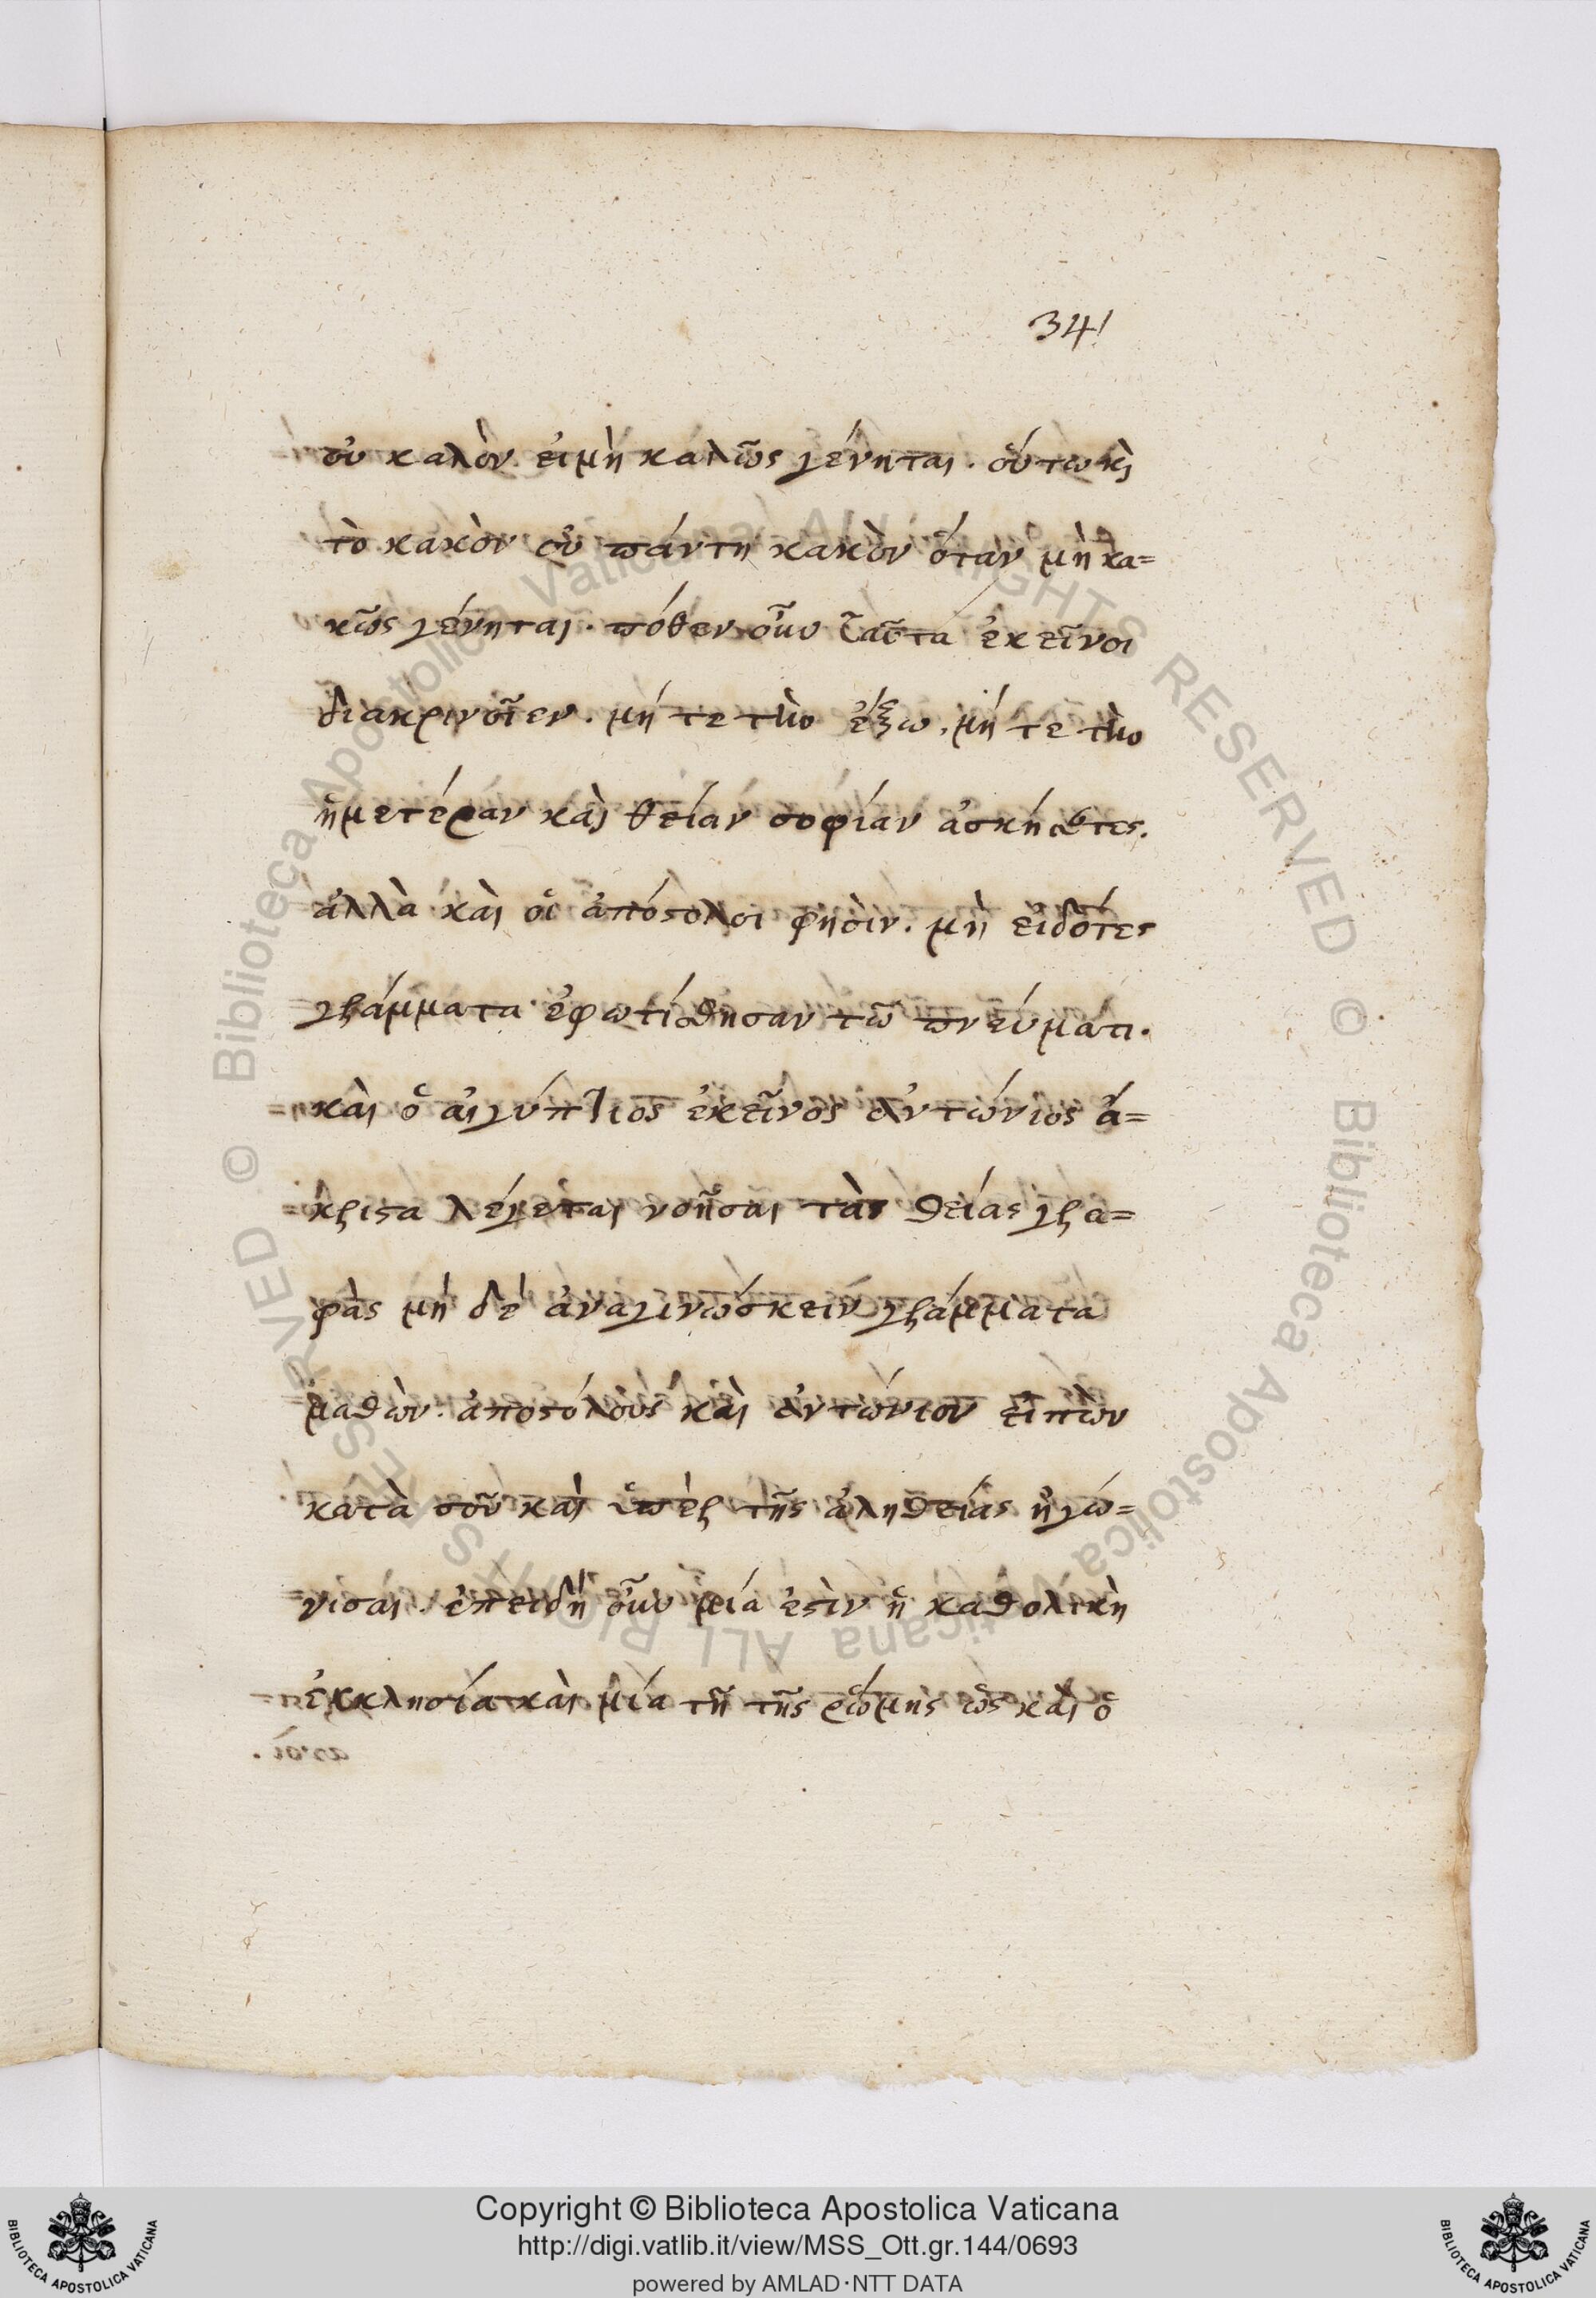 341
οὐ καλὸν εἰμὴ καλῶς γένηται. οὕτω καὶ
τὸ κακὸν οὐ πάντη κακὸν ὅταν μὴ κα=
κῶς γένηται. πόθεν οὖν ταῦτα ἐκεῖνοι
διακρινοῖεν. μή τε τὴν ἔξω. μή τε τὴν
ἡμετέραν καὶ θείαν σοφίαν ἀσκήσαντες.
ἀλλὰ καὶ οἱ ἀπόστολοι φησὶν. μὴ εἰδότες
γράμματα ἐφωτίσθησαν τῶ πνεύματι.
καὶ ὁ αἰγύπτιος ἐκεῖνος ἀντώνιος ἄ=
κριστα λέγεται νοῆσαι τὰς θείας γρα=
φὰς μὴ δὲ ἀναγινώσκειν γράμματα
μαθὼν. ἀποστόλους καὶ ἀντώνιον εἰπὼν
κατὰ σοῦ καὶ ὑπὲρ τῆς ἀληθείας ἠγώ=
νισαι. ἐπειδὴ οὖν μία ἐστὶν ἡ καθολικὴ
ἐκκλησία καὶ μία τῆ τῆς ῥώμης ὡς καὶ ὁ
Copyright © Biblioteca Apostolica Vaticana
http://digi.vatlib.it/view/MSS_Ott.gr.144/0693
powered by AMLAD·NTT DATA
BIBLIOTECA APOSTOLICA VATICANA
BIBLIOTECA APOSTOLICA VATICANA
© Biblioteca Apostolica Vaticana ALL RIGHTS RESERVED © Biblioteca Apostolica Vaticana ALL RIGHTS RESERVED